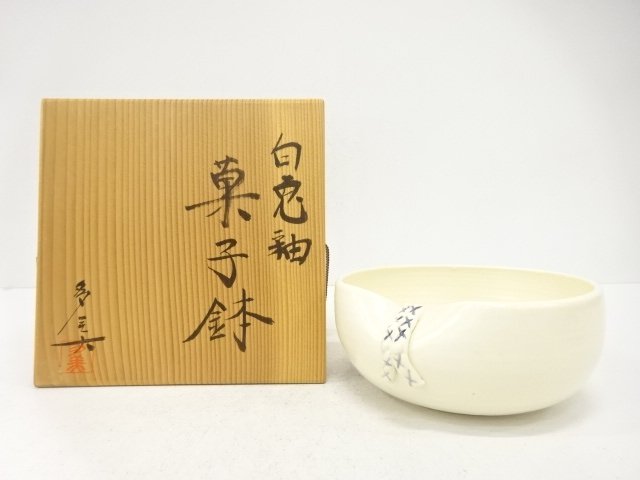 白兎釉
菓子鉢